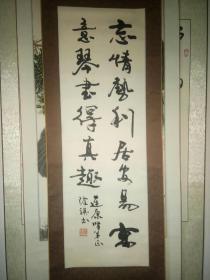 忘情勢利居安易寓
意琴書得真趣